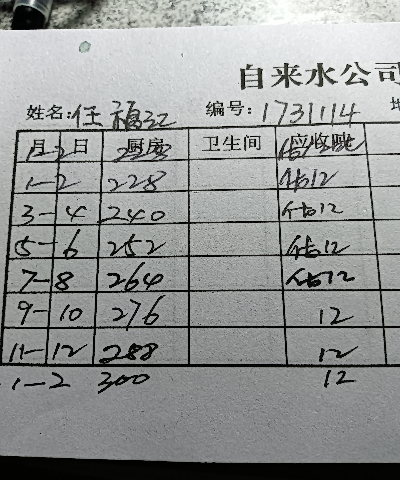 自来水公司
姓名:任福江 编号:1731114
月 日 厨房 卫生间 应收账
1-2 228 估12
3-4 240 估12
5-6 252 估12
7-8 264 估12
9-10 276 12
11-12 288 12
1-2 300 12